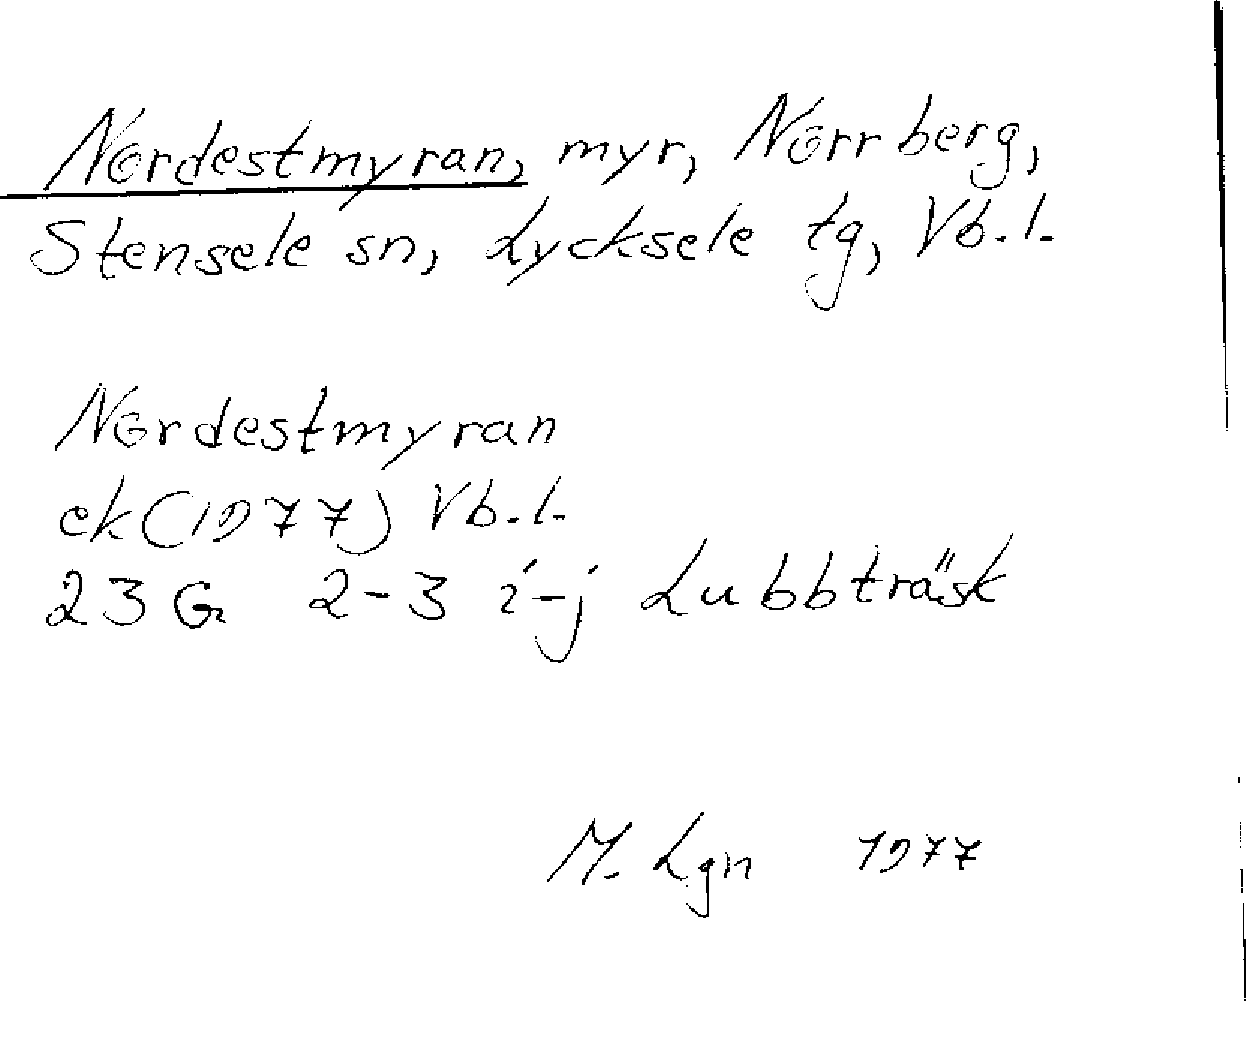 Nordestmyran, myr, Norrberg,
Stensele sn, Lycksele tg, Vb.l.
Nordestmyran
ek(1977) Vb.l.
23 G 2-3 i-j Lubbträsk
M. Lgn 1977